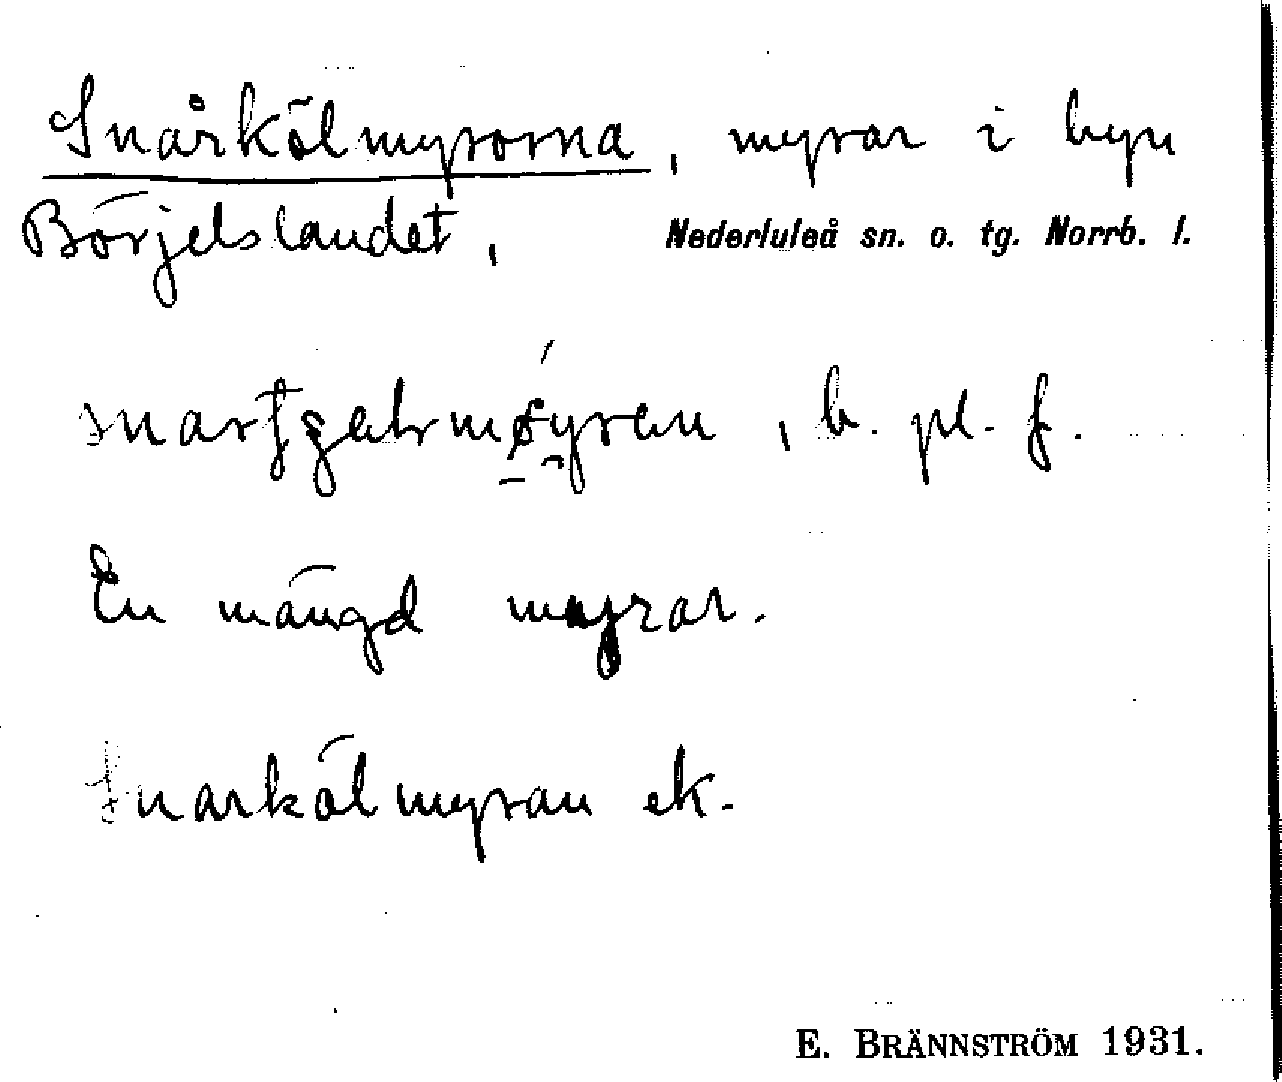 Snårkölmyrorna, myrar i byn
Börjelslandet, Nederluleå sn. o. tg. Norrb. l.
, b. pl. f.
En mängd myrar.
Snarkölmyran ek.
E. BRÄNNSTRÖM 1931.